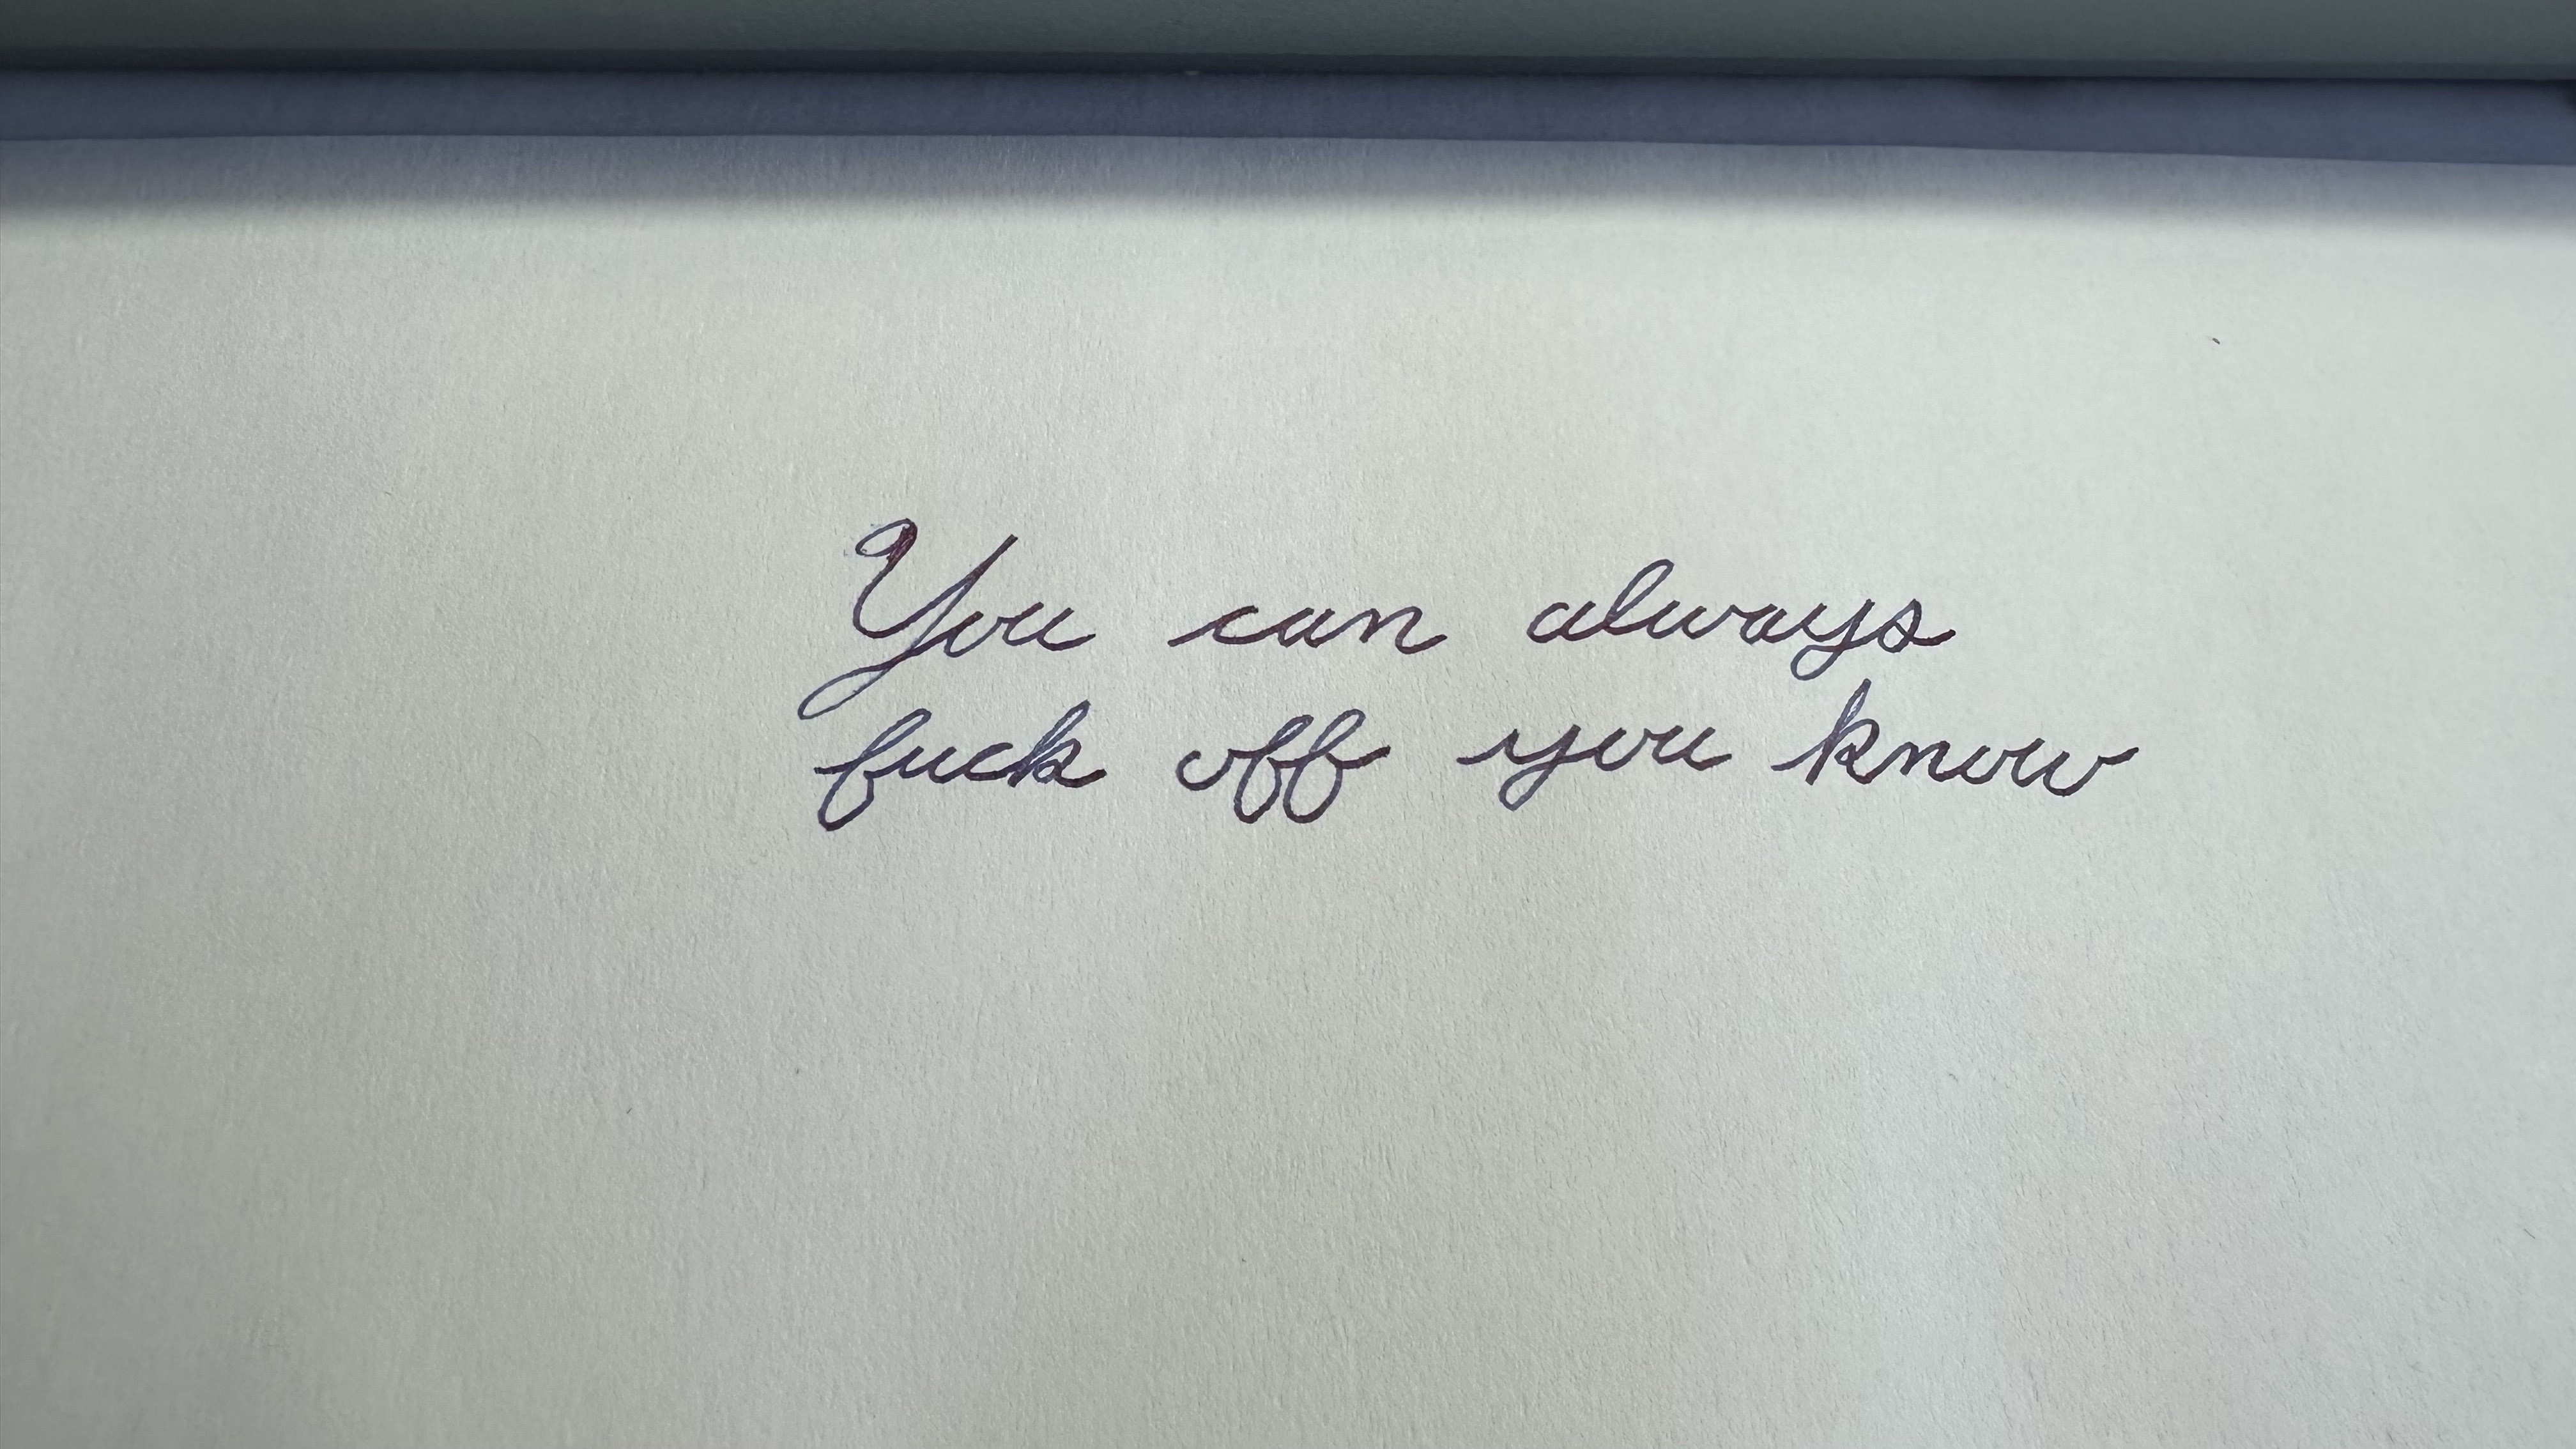 You can always
fuck off you know